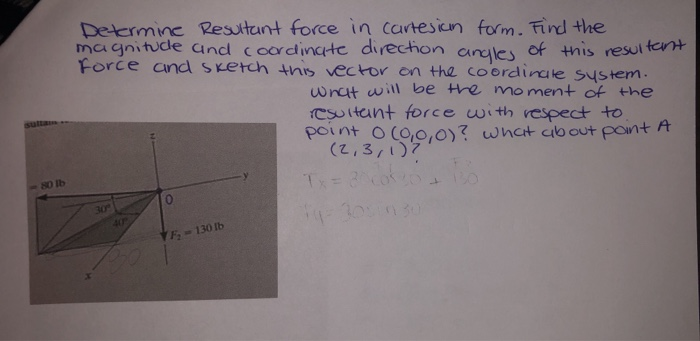 Determine Resultant force in cartesian form. Find the
magnitude and coordinate direction angles of this resultant
Force and sketch this vector on the coordinate system.
What will be the moment of the
resultant force with respect to
point O (0,0,0)? What about point A
(2,3,1)?
z
y
= 80 lb
O
30°
40°
F₂ = 130 lb
x